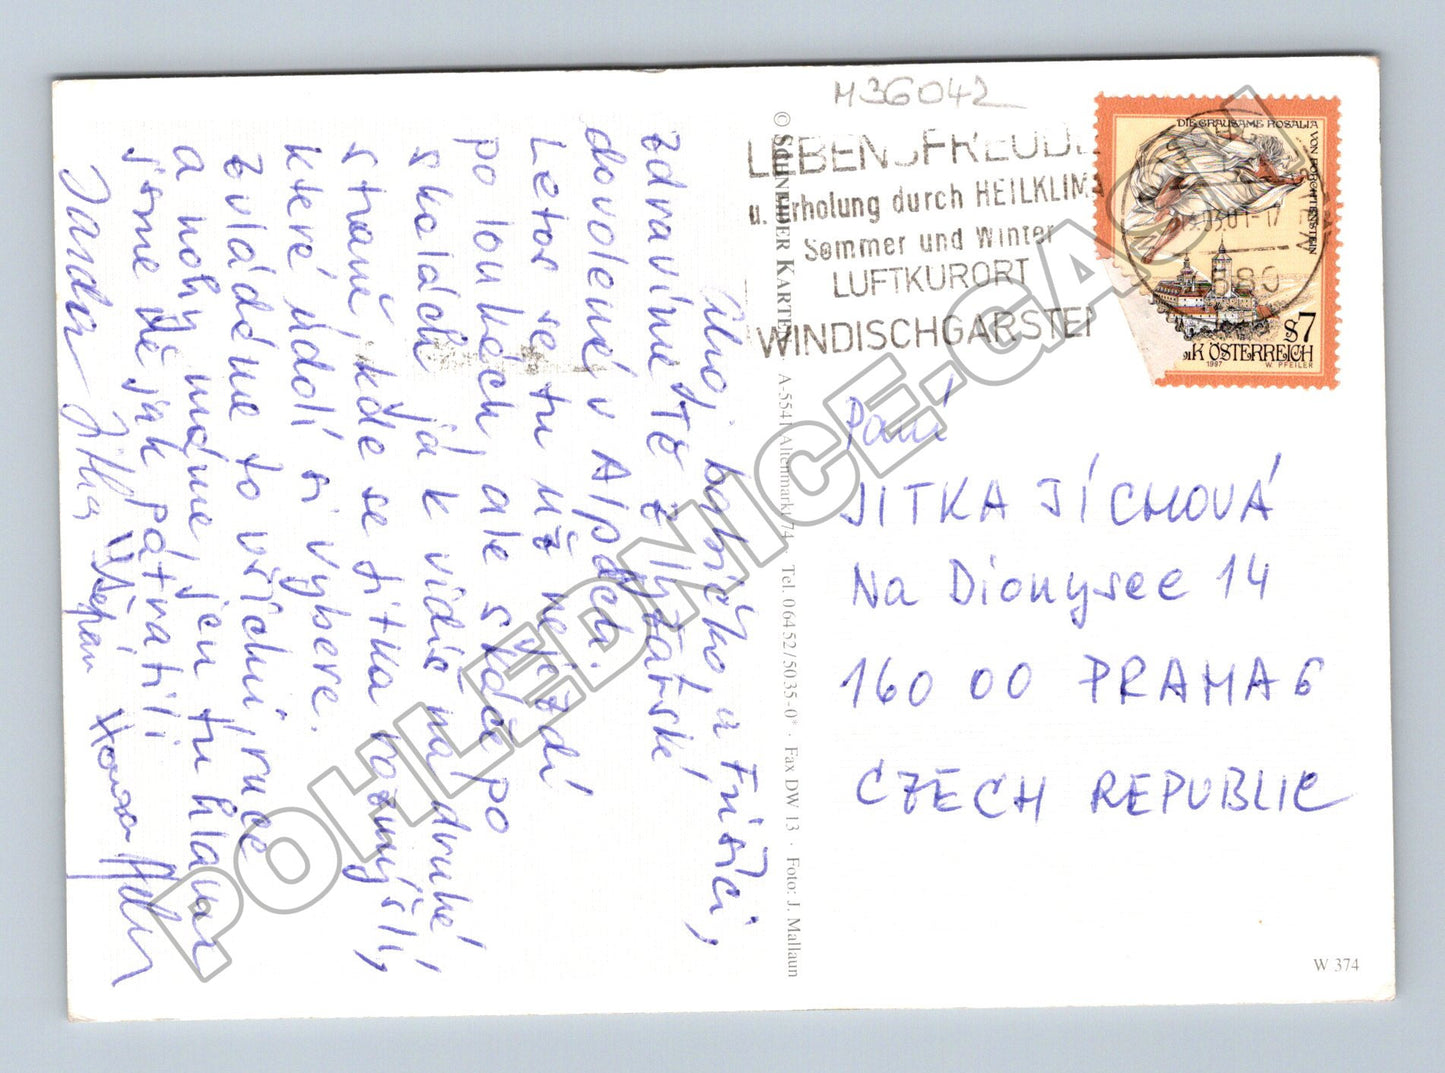 M36042
LEBENSFREUDE
u. Erholung durch HEILKLIMA
Sommer und Winter
LUFTKURORT
WINDISCHGARSTEN
DIE GRAUSAME ROSALIA VON FORCHTENSTEIN
S7
K ÖSTERREICH
1997 W. PFEILER
Ahoj babičko a Frištíci,
zdravíme Tě z lyžařské
dovolené v Alpách.
Letos se tu už nejezdí
po loukách, ale stále po
skalách já k vidíš na druhé
straně, kde se sitka
které údolí si vybere.
Zvládáme to všichni, ruce
a nohy máme, jen tu hlavu
jsme dě jak
Jarda Jitka Štěpán Honza
© SCHNEIDER KARTEN A-5541 Altenmarkt 74 Tel. 06452/5035-0* · Fax DW 13 · Foto: J. Mallaun
Paní
JITKA JÍCHOVÁ
Na Dionysee 14
160 00 PRAHA 6
CZECH REPUBLIC
W 374
POHLEDNICE.CASH